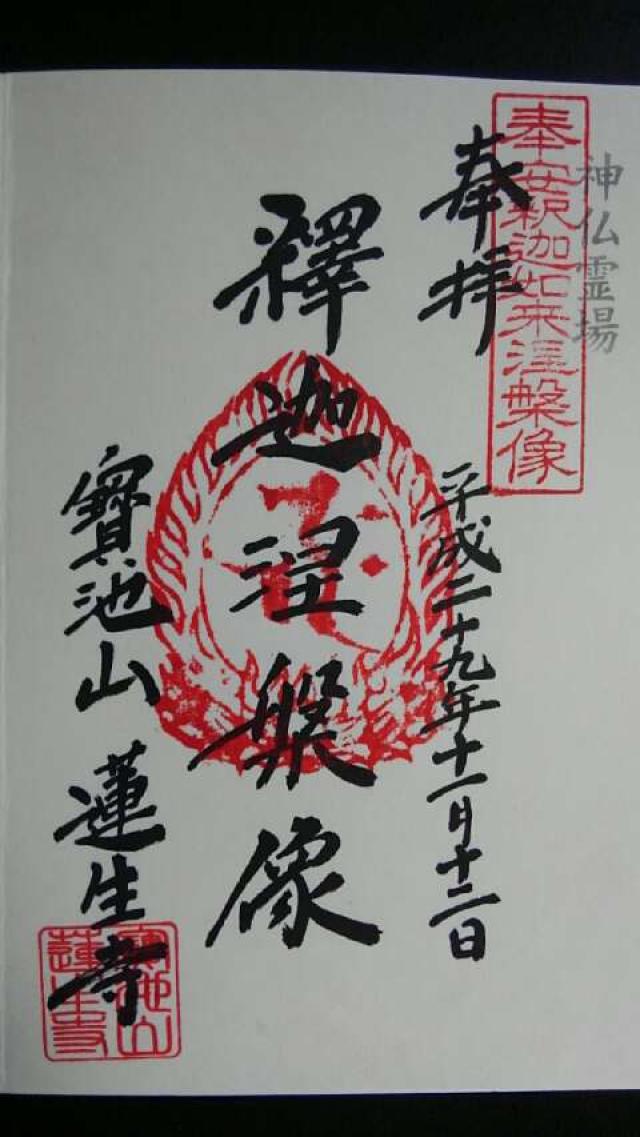 神仏霊場
奉安釈迦如来涅槃像
奉拝
平成二十九年十一月十二日
釋迦涅槃像
寶池山 蓮生寺
寶池山
蓮生寺